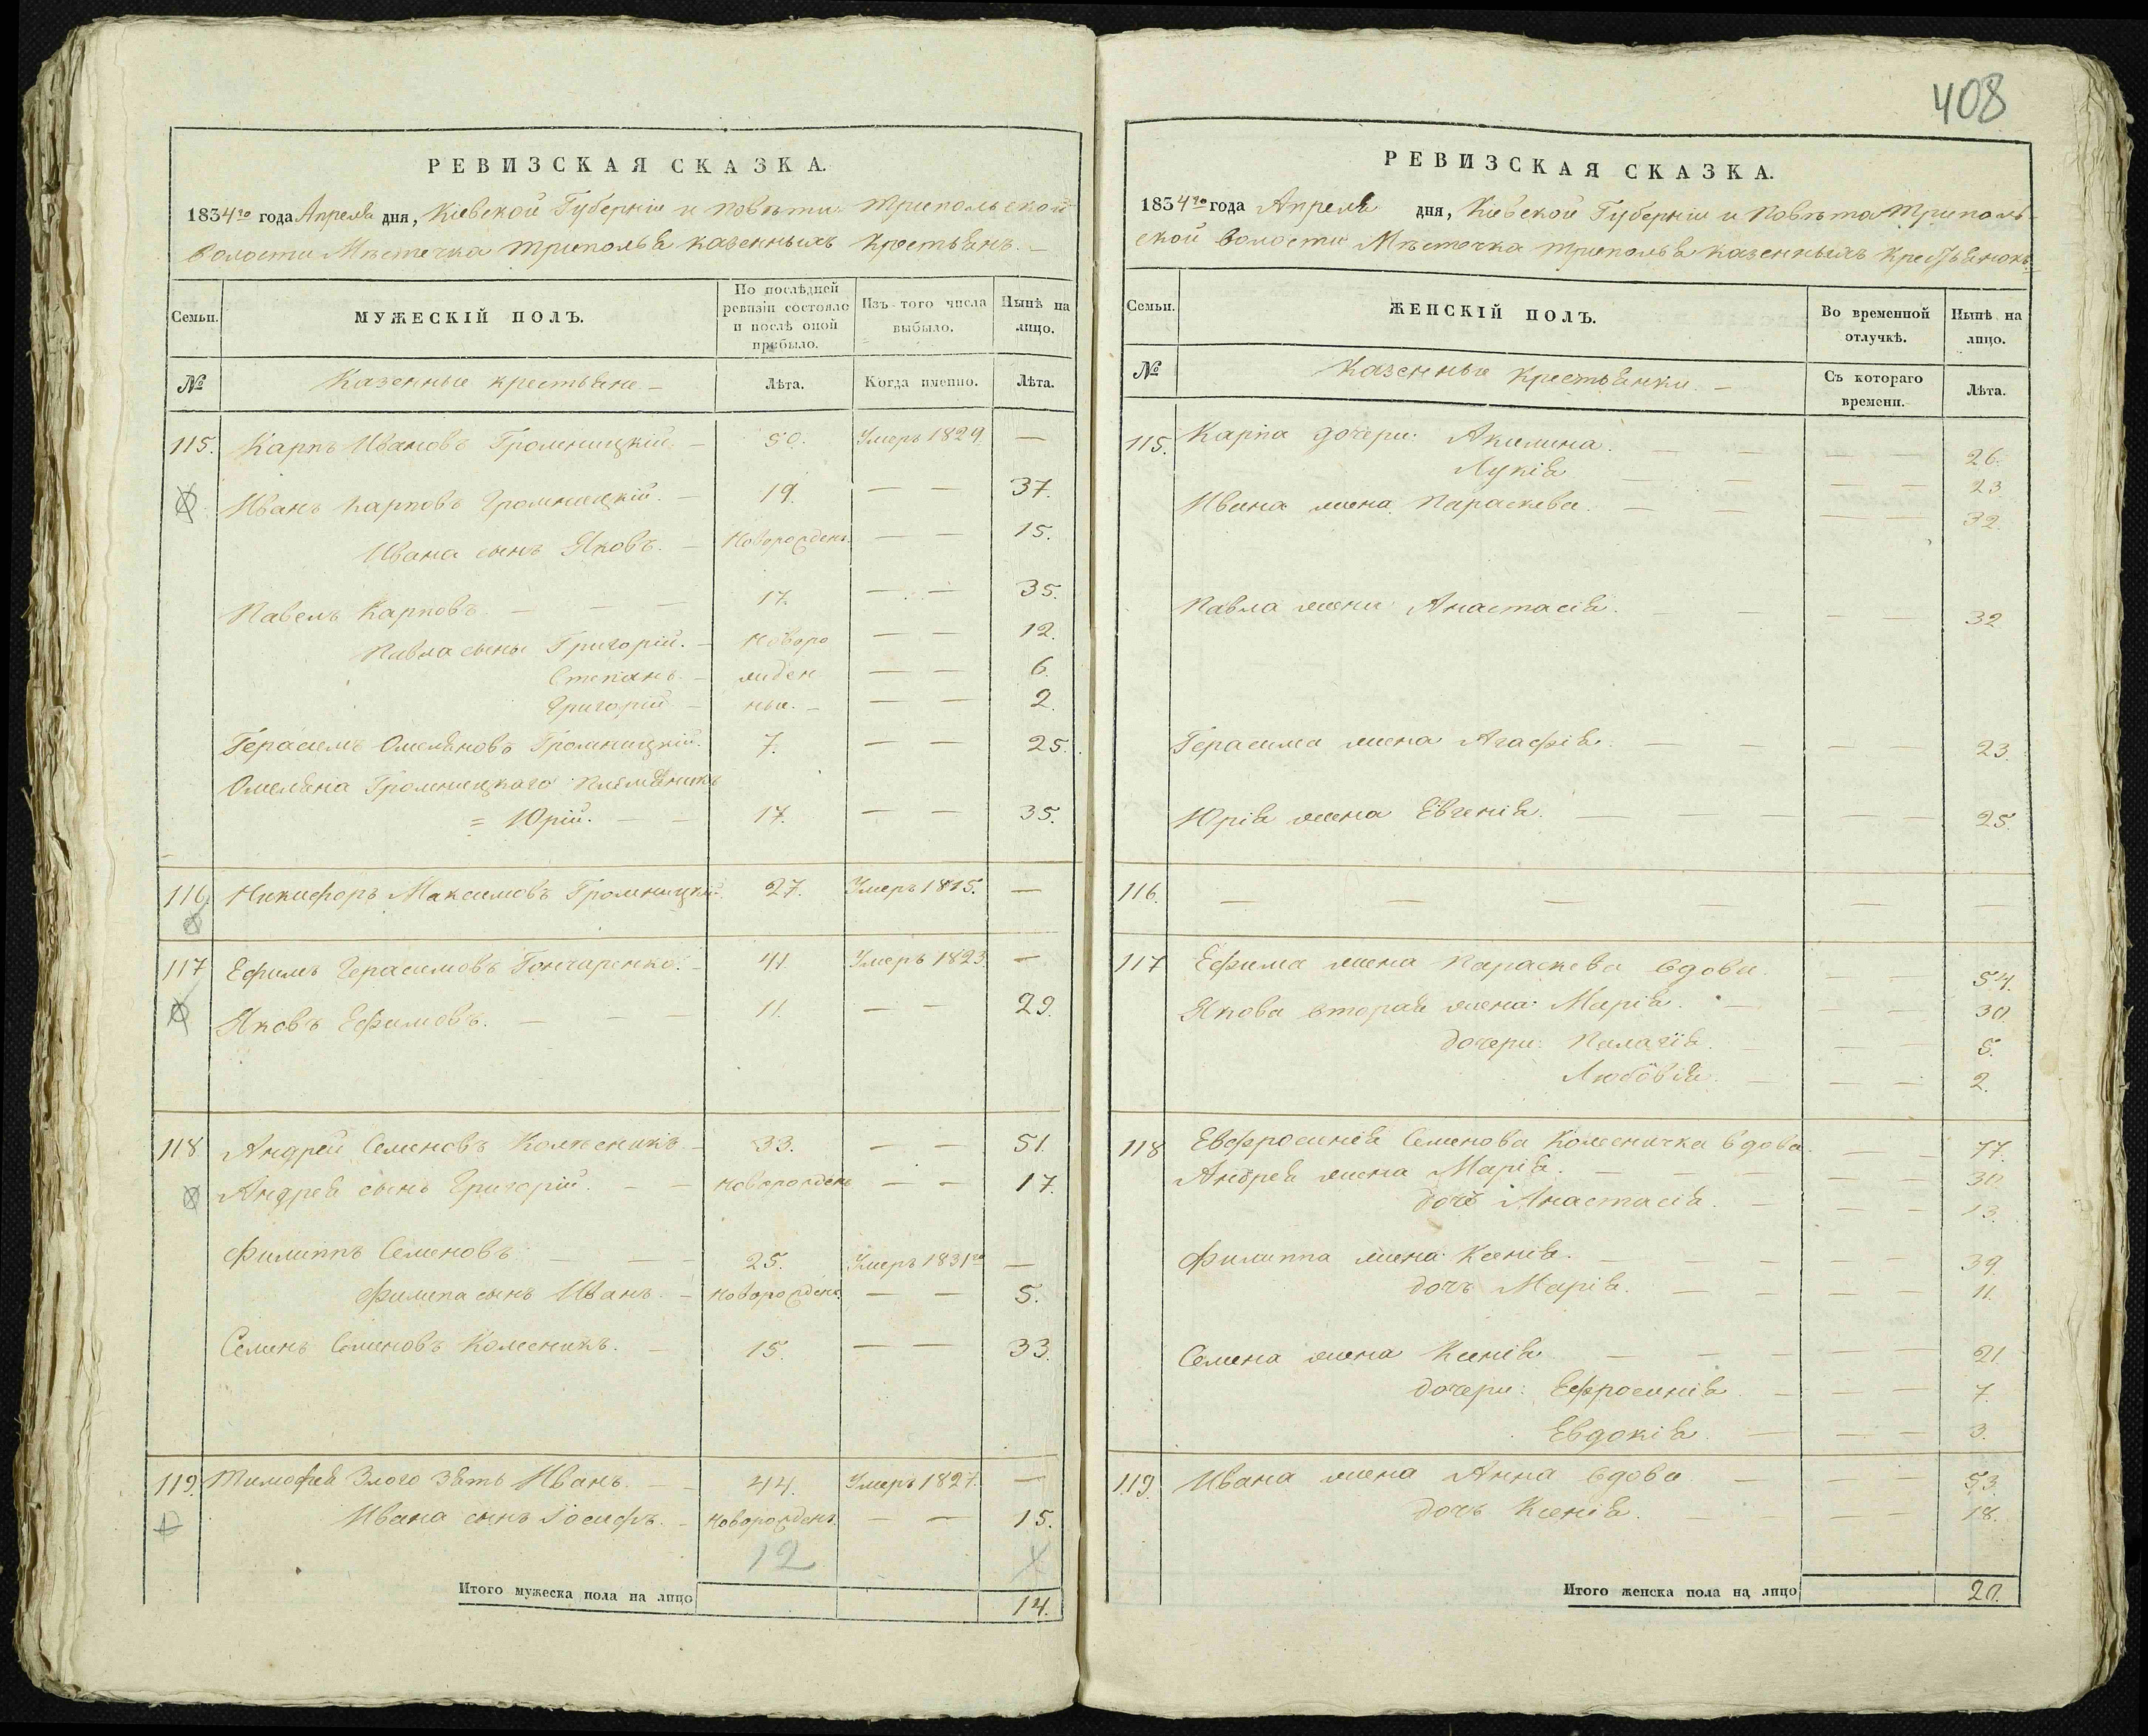 408
РЕВИЗСКАЯ СКАЗКА.
1834го года Апреля дня, Кіевской Губерніи и повѣта Трипольской
волости Мѣстечка Триполья казенныхъ крестьянъ. —
Семьи.
МУЖЕСКІЙ ПОЛЪ.
По послѣдней ревизіи состояло и послѣ оной прибыло.
Изъ того числа выбыло.
Нынѣ на лицо.
№ Казенные крестьяне — Лѣта. Когда именно. Лѣта.
115. Карпъ Ивановъ Громницкій. — 50. Умеръ 1829 —
Иванъ Карповъ Громницкій. — 19. — — 37.
Ивана сынъ Яковъ. — Новорожденъ — — 15.
Павелъ Карповъ — — — 17. — — 35.
Павла сыны Григорій. — новоро — — 12.
Степанъ. — жден — — 6.
Григорій — ные. — — — 2.
Герасимъ Омеляновъ Громницкій. 7. — — 25.
Омеляна Громницкаго племянникъ
= Юрій. — — 17. — — 35.
116. Никифоръ Максимовъ Громницкій. 27. Умеръ 1815. —
117 Ефимъ Герасимовъ Гончаренко. — 41. Умеръ 1823. —
Яковъ Ефимовъ. — — — 11. — — 29.
118 Андрей Семеновъ Колѣсникъ — 33. — — 51.
Андрея сынъ Григорій. — — новорожденъ — — 17.
Филиппъ Семеновъ — — — 25. Умеръ 1831го —
Филипа сынъ Иванъ. — новорожденъ. — — 5.
Семенъ Семеновъ Колесникъ. — 15. — — 33.
119. Тимофея Злого зять Иванъ. — — 44. Умеръ 1827. —
Ивана сынъ Іосифъ. — новорожденъ. — — 15.
12
Итого мужеска пола на лицо 14.
РЕВИЗСКАЯ СКАЗКА.
1834го года Апреля дня, Кіевской Губерніи и Повѣта Триполь-
ской волости Мѣстечка Триполья казенныхъ крестьянокъ.
Семьи.
ЖЕНСКІЙ ПОЛЪ.
Во временной отлучкѣ.
Нынѣ на лицо.
№ Казенныя крестьянки. — Съ котораго времени. Лѣта.
115. Карпа дочери: Акилина. — — — — 26.
Лукія — — — — 23.
Ивана жена Параскева. — — — — 32.
Павла жена Анастасія. — — — — 32
Герасима жена Агафія. — — — — 23.
Юрія жена Евгенія. — — — — 25.
116. — — — — — — —
117 Ефима жена Параскева вдова. — — 54.
Якова вторая жена Марія. — — — 30.
дочери: Палагія. — — — 5.
Любовія. — — — 2.
118 Евфросинія Семенова Колесничка вдова. — — 77.
Андрея жена Марія. — — — — 30
дочь Анастасія. — — — 13.
Филиппа жена Ксенія. — — — — 39.
дочь Марія. — — — — 11.
Семена жена Ксенія — — — — 21.
дочери: Ефросинія. — — — 7.
Евдокія. — — — 3.
119. Ивана жена Анна вдова. — — — 53.
дочь Ксенія. — — — — 18.
Итого женска пола на лицо 20.